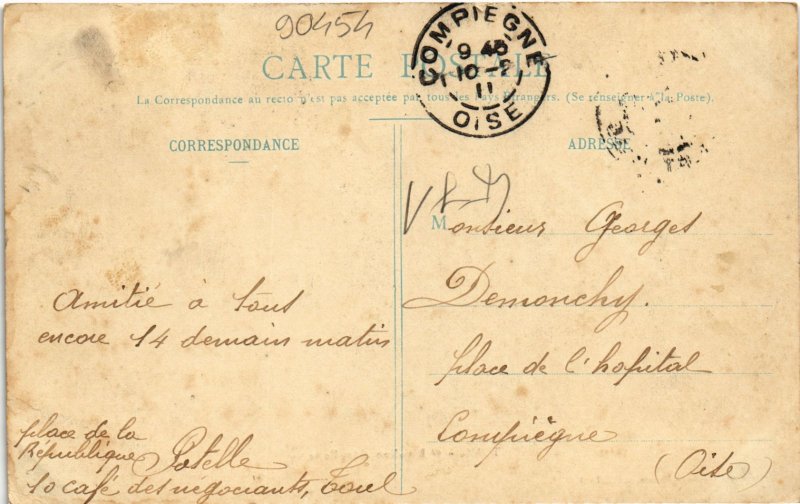 90454
CARTE POSTALE
COMPIEGNE
9 45
10 -2
11
OISE
La Correspondance au recto n'est pas acceptée par tous les Pays Étrangers. (Se renseigner à la Poste).
CORRESPONDANCE
ADRESSE
Amitié à tous
encore 14 demain matin
place de la
République Potelle
10 café des négociants, Toul
Monsieur Georges
Demonchy.
place de l'hopital
Compiègne
(Oise)